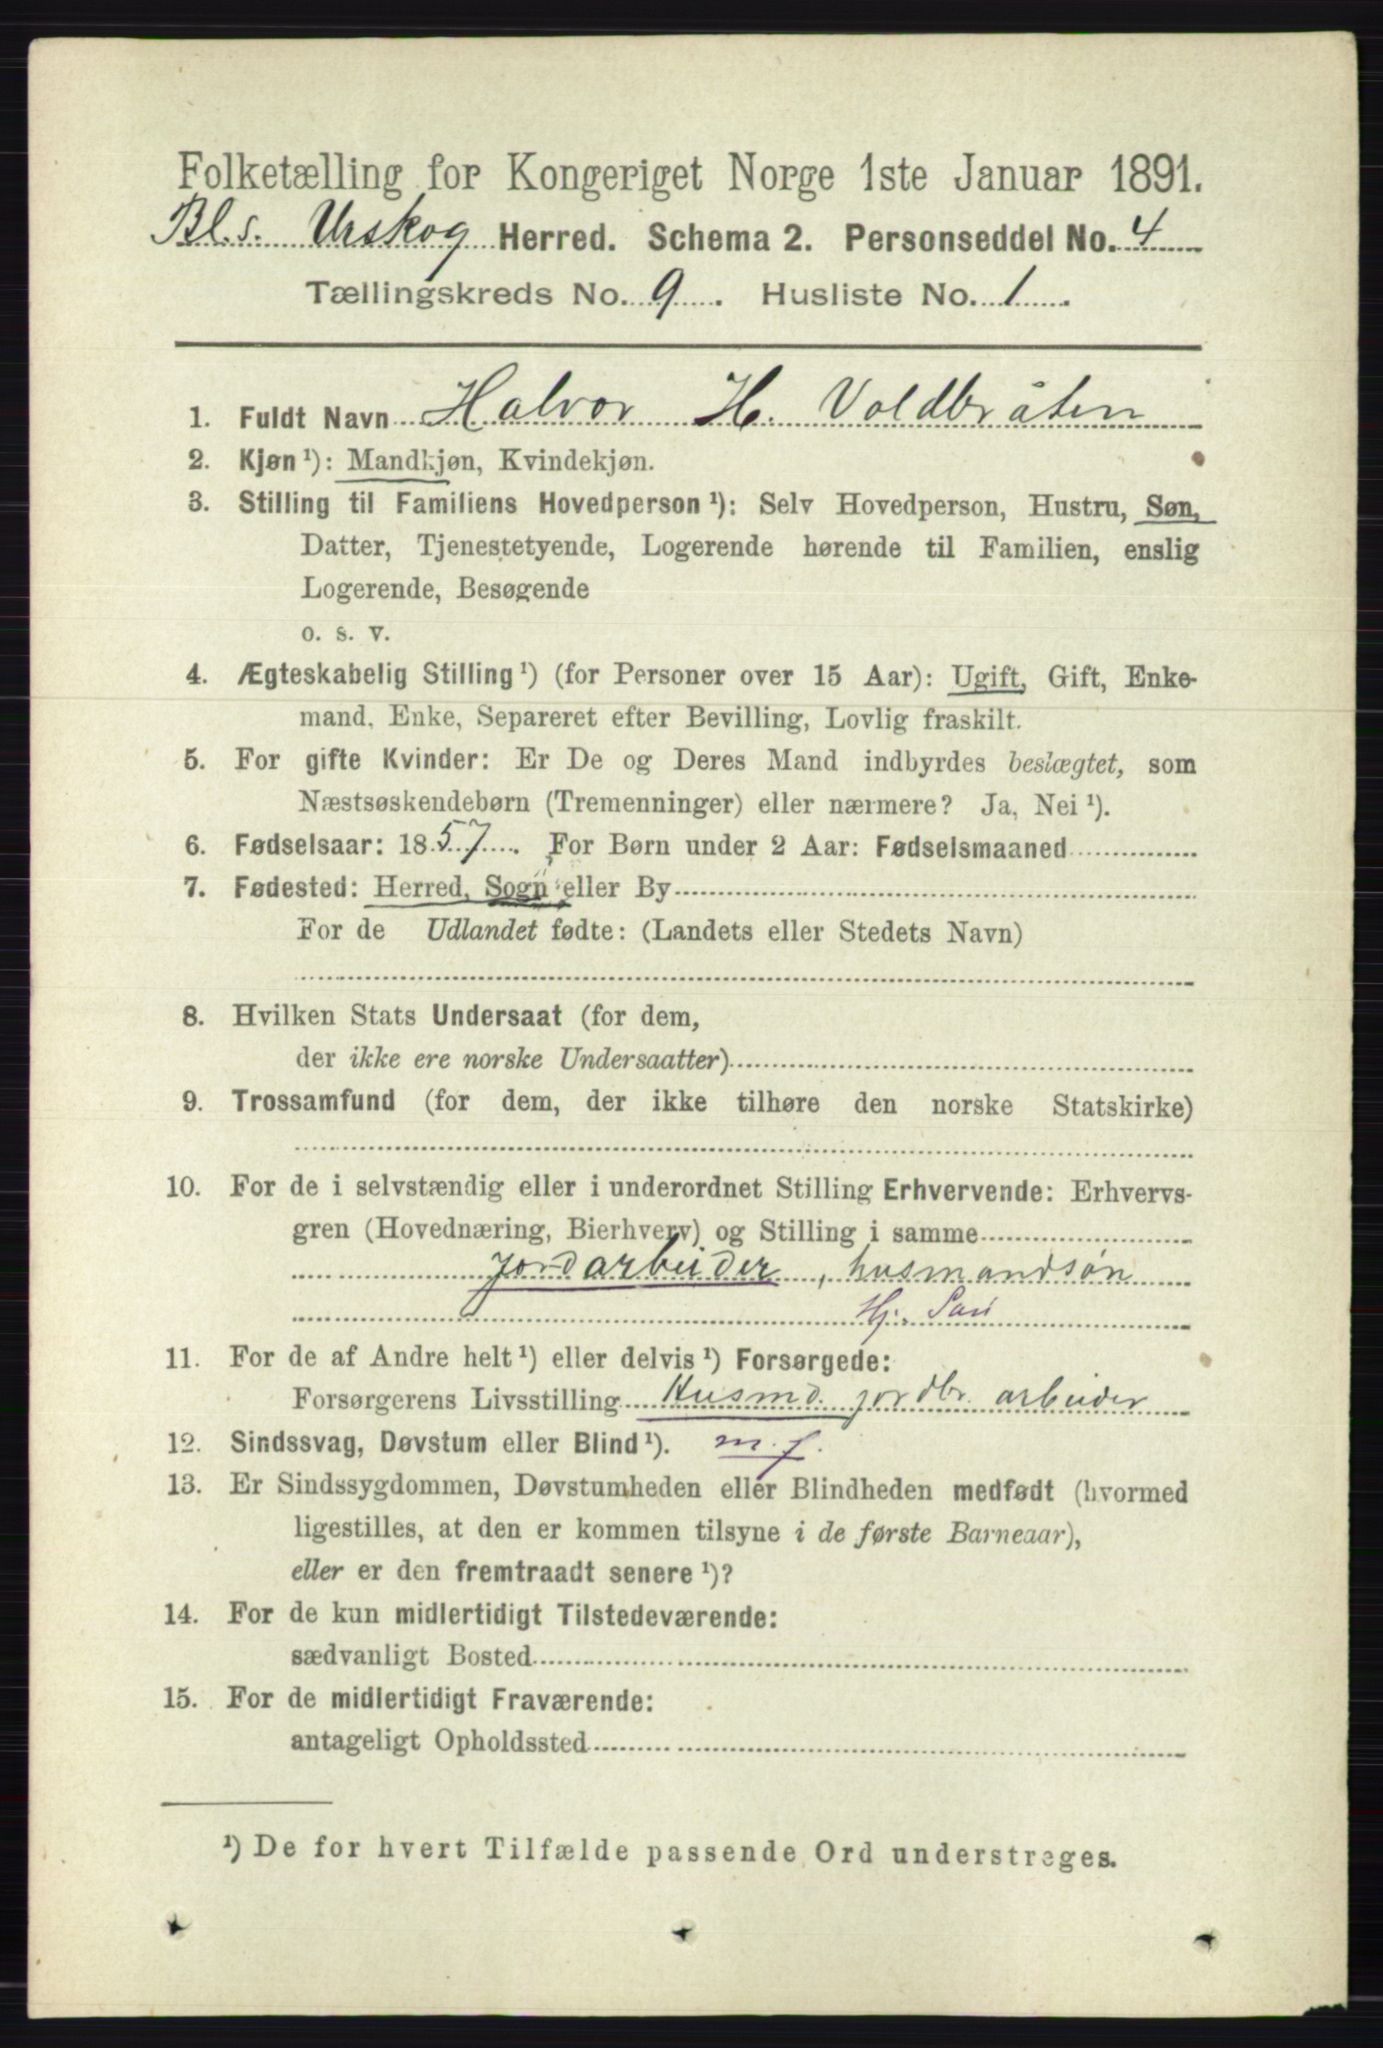 Folketælling for Kongeriget Norge 1ste Januar 1891.
Bl.s. Urskog Herred. Schema 2. Personseddel No. 4
Tællingskreds No. 9. Husliste No. 1.
1. Fuldt Navn Halvor H. Voldbråten
2. Kjøn ¹): Mandkjøn, Kvindekjøn.
3. Stilling til Familiens Hovedperson ¹): Selv Hovedperson, Hustru, Søn,
Datter, Tjenestetyende, Logerende hørende til Familien, enslig
Logerende, Besøgende
o. s. v.
4. Ægteskabelig Stilling ¹) (for Personer over 15 Aar): Ugift, Gift, Enke-
mand, Enke, Separeret efter Bevilling, Lovlig fraskilt.
5. For gifte Kvinder: Er De og Deres Mand indbyrdes beslægtet, som
Næstsøskendebørn (Tremenninger) eller nærmere? Ja, Nei ¹).
6. Fødselsaar: 1857. For Børn under 2 Aar: Fødselsmaaned
7. Fødested: Herred, Sogn eller By
For de Udlandet fødte: (Landets eller Stedets Navn)
8. Hvilken Stats Undersaat (for dem,
der ikke ere norske Undersaatter)
9. Trossamfund (for dem, der ikke tilhøre den norske Statskirke)
10. For de i selvstændig eller i underordnet Stilling Erhvervende: Erhvervs-
gren (Hovednæring, Bierhverv) og Stilling i samme
Jordarbeider, husmandsøn
Hj.
11. For de af Andre helt ¹) eller delvis ¹) Forsørgede:
Forsørgerens Livsstilling Husmd. jordbr. arbeider
12. Sindssvag, Døvstum eller Blind ¹). m. f.
13. Er Sindssygdommen, Døvstumheden eller Blindheden medfødt (hvormed
ligestilles, at den er kommen tilsyne i de første Barneaar),
eller er den fremtraadt senere ¹)?
14. For de kun midlertidigt Tilstedeværende:
sædvanligt Bosted
15. For de midlertidigt Fraværende:
antageligt Opholdssted
¹) De for hvert Tilfælde passende Ord understreges.